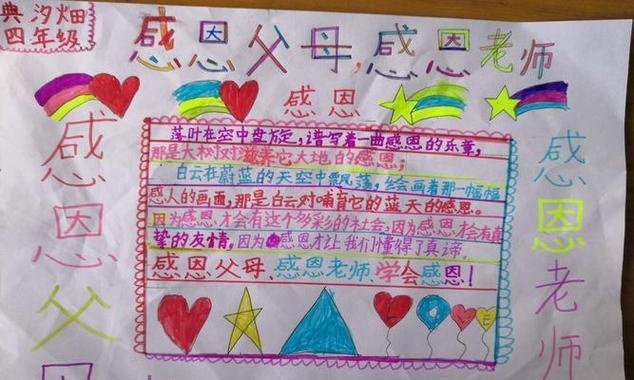 典汐畑
四年级
感恩父母,感恩老师
感恩
感恩父
感恩老师
落叶在空中盘旋,谱写着一曲感恩的乐章,
那是大树对滋养它大地的感恩;
白云在蔚蓝的天空中飘荡,绘画着那一幅幅
感人的画面,那是白云对哺育它的蓝天的感恩。
因为感恩才会有这个多彩的社会,因为感恩才会有真
挚的友情,因为感恩才让我们懂得了真谛。
感恩父母、感恩老师、学会感恩!
L O V E